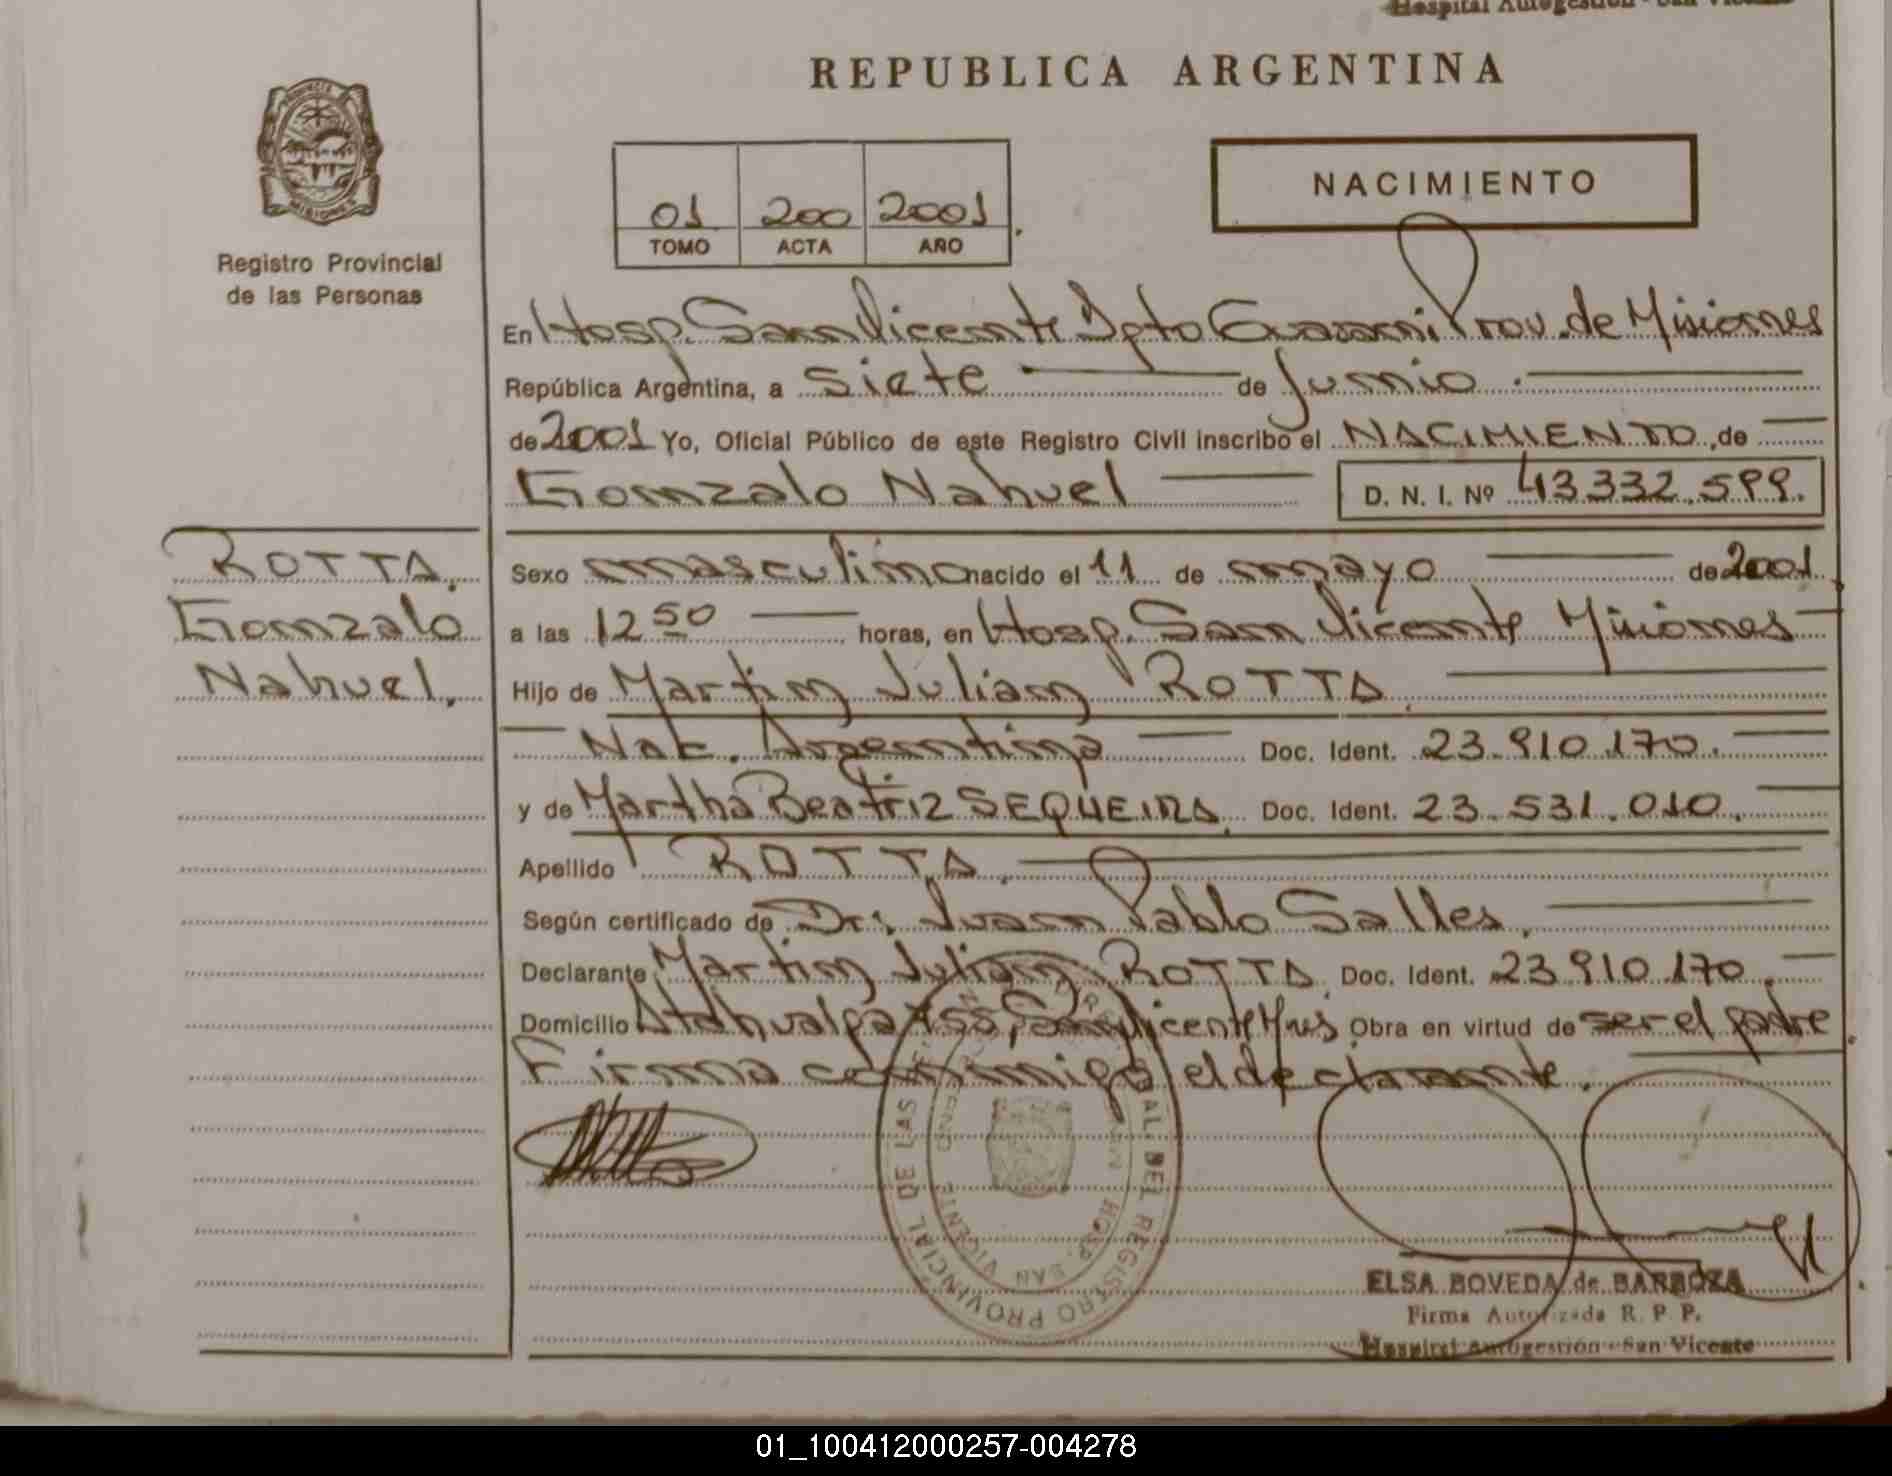 Hospital Autogestión - San Vicente
REPUBLICA ARGENTINA
PROVINCIA
MISIONES
Registro Provincial
de las Personas
01 200 2001
TOMO ACTA AÑO
NACIMIENTO
En Hosp. San Vicente Dpto Guarani Prov. de Misiones
República Argentina, a siete de Junio
de 2001 Yo, Oficial Público de este Registro Civil inscribo el NACIMIENTO, de
Gonzalo Nahuel D. N. I. Nº 43332.599.
ROTTA.
Gonzalo
Nahuel.
Sexo masculino nacido el 11 de mayo de 2001
a las 12 50 horas, en Hosp. San Vicente Misiones
Hijo de Martin Julian ROTTA.
Nac. Argentina Doc. Ident. 23.910.170.
y de Martha Beatriz SEQUEIRA. Doc. Ident. 23.531.010.
Apellido ROTTA.
Según certificado de Dr: Juan Pablo Salles.
Declarante Martin Julian ROTTA. Doc. Ident. 23.910.170.
Domicilio Atahualpa San Vicente Mnes Obra en virtud de ser el padre
Firma conmigo el declarante.
REGISTRO PROVINCIAL DE LAS
HOSP. SAN VICENTE
ELSA BOVEDA de BARBOZA
Firma Autorizada R. P. P.
Hospital Autogestión - San Vicente
01_100412000257-004278